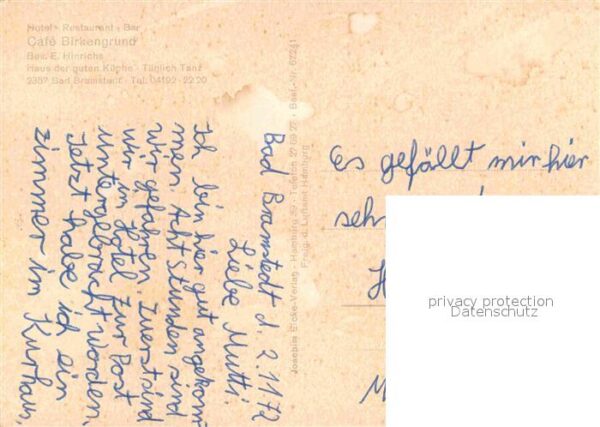 Hotel · Restaurant · Bar
Café Birkengrund
Bes. E. Hinrichs
Haus der guten Küche · Täglich Tanz
2357 Bad Bramstedt · Tel. 04192 - 22 20
Bad Bramstedt d. 2.11.72
Liebe Mutti.
Ich bin hier gut angekom
men. Acht Stunden sind
wir gefahren. Zuerst sind
wir im Hotel zur Post
untergebracht worden.
Jetzt habe ich ein
zimmer im Kurhaus.
Es gefällt mir hier
sehr
privacy protection
Datenschutz